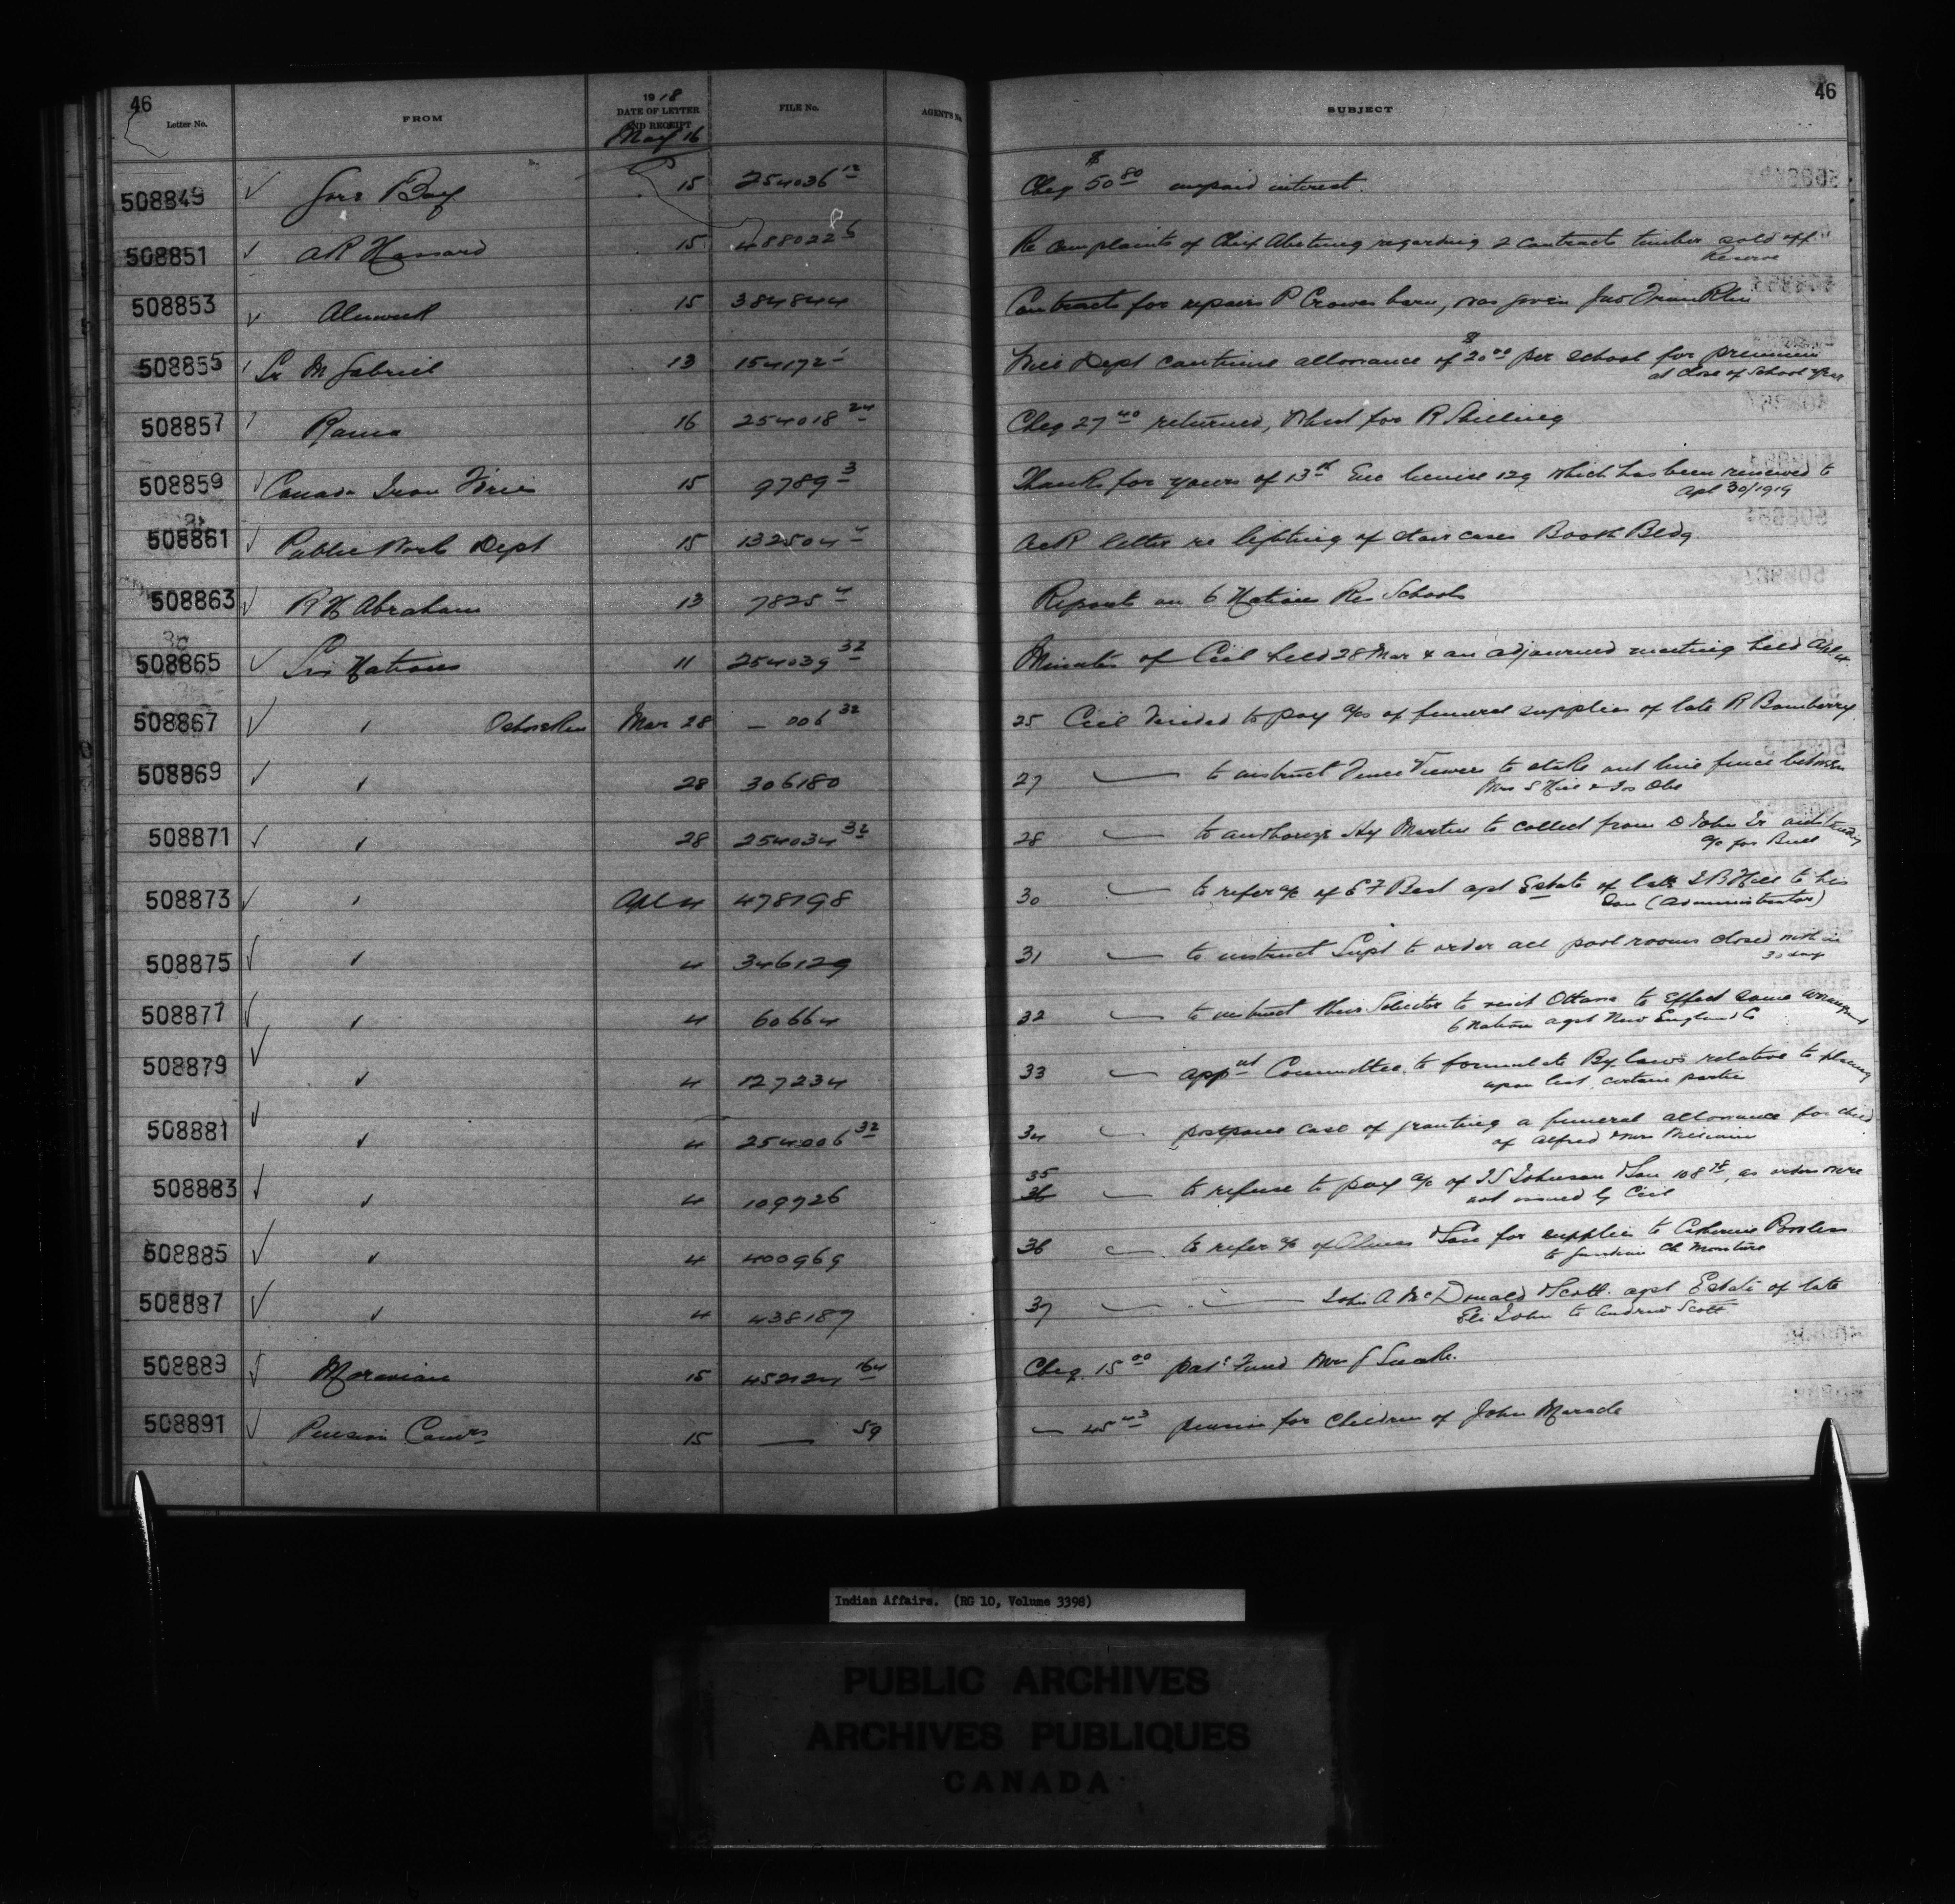 46
46
Letter No. FROM 1918 DATE OF LETTER AND RECEIPT FILE No. AGENT'S No. SUBJECT
May 16
508849 Gore Bay 15 254036 12 Cheq $50 80 unpaid interest.
508851 A R Hassard 15 488022 6 Re complaints of Chief regarding 2 contracts timber sold off
Reserve
508853 Alnwick 15 384844 Contracts for repairs P Crowes barn, was given Jno Franklin
508855 Sr M Gabriel 13 154172 1 Will Dept continue allowance of $20 00 per school for premium
at close of School year
508857 Rama 16 254018 24 Cheq 27 40 returned, for R Shilling
508859 Canada Iron 15 9789 3 Thanks for yours of 13th Enc license 129 which has been renewed to
Apl 30/1919
508861 Public Work Dept 15 132504 4 Ack letter re lighting of stair cases Booth Bldg.
508863 R H Abraham 13 7825 4 Reports on 6 Nations Res Schools
508865 Six Nations 11 254039 32 Minutes of Ccil held 28 Mar & an adjourned meeting held Apl 4
508867 " Ohsweken Mar 28 — 006 32 25 Ccil decided to pay a/cs of funeral supplies of late R Bomberry
508869 " 28 306180 27 — to instruct Fence Viewers to stake out line fence between
Mrs S Hill & Jos Obe
508871 " 28 254034 32 28 — to authorize Hy Martin to collect from D John Sr outstanding
a/c for Bull
508873 " Apl 4 478798 30 — to refer a/c of E F Best agst Estate of late J B Hill to his
Son (Administrator)
508875 " 4 346129 31 — to instruct Supt to order all pool rooms closed with in
30 days
508877 " 4 60664 32 — to instruct their Solicitor to visit Ottawa to effect some arrangement
6 Nations agst New England Co
508879 " 4 127234 33 — appnt Committee to formulate By laws relative to placing
upon list certain parties
508881 " 4 254006 32 34 — postpone case of granting a funeral allowance for child
of Alfred & Mrs
508883 " 4 109726 35 36 — to refuse to pay a/c of J S Johnson & Son 108 , as orders were
not issued by Ccil
508885 " 4 400969 36 — to refer a/c of & Son for supplies to Catherine
to Ch Monture
508887 " 4 438187 37 — — John A McDonald & Scott agst Estate of late
Eli John to Andrew Scott
508889 Moravian 15 452124 164 Cheq. 15 00 Patc Fund Mrs J Snake.
508891 Pension Comrs 15 — 59 — 45 43 pension for children of John
Indian Affairs. (RG 10, Volume 3398)
PUBLIC ARCHIVES
ARCHIVES PUBLIQUES
CANADA